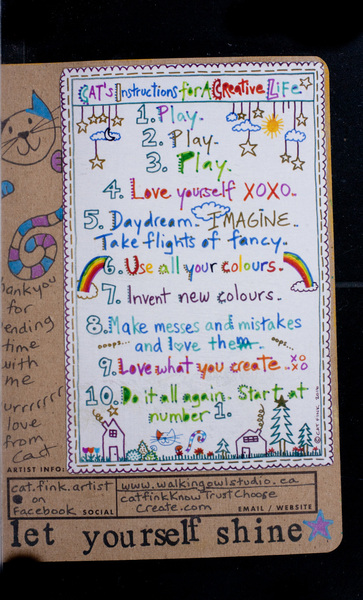 CAT's Instructions for A Creative Life
1. Play.
2. Play.
3. Play.
4. Love yourself XOXO..
5. Daydream.. IMAGINE..
Take flights of fancy..
6. Use all your colours..
7. Invent new colours..
8. Make messes and mistakes
ooops... and love them.. ooops...
9. Love what you create.. XO XO
10. Do it all again.. Start at
number 1.
© CAT FINK 2010
thankyou
for
lending
time
with
me
urrrrrrr
love
from
Cat
ARTIST INFO
cat.fink.artist
on
Facebook SOCIAL
www.walkingowlstudio.ca
catfinkKnowTrustChoose
Create.com
EMAIL / WEBSITE
let yourself shine